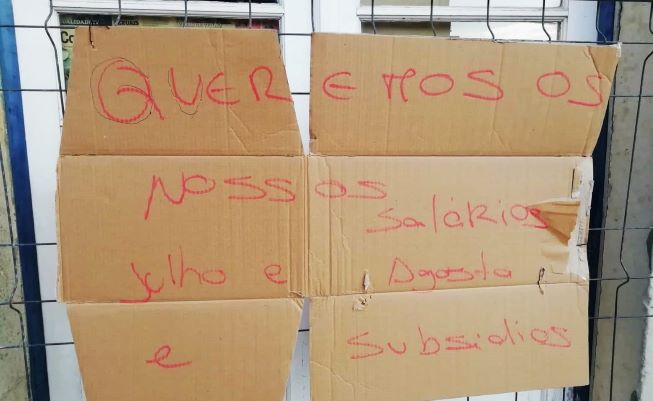 QUEREMOS OS
NOSSOS
Salários
julho e Agosto
e subsidios